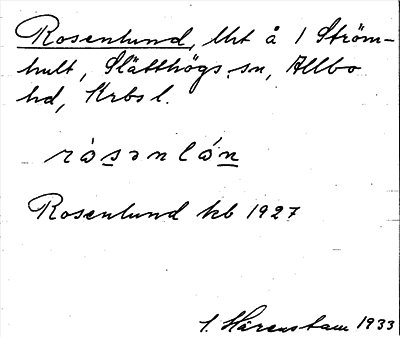 Rosenlund, lht å 1 Ström-
hult, Slätthögs sn, Allbo
hd, Krbs l.
ròsənlón
Rosenlund kb 1927
1933